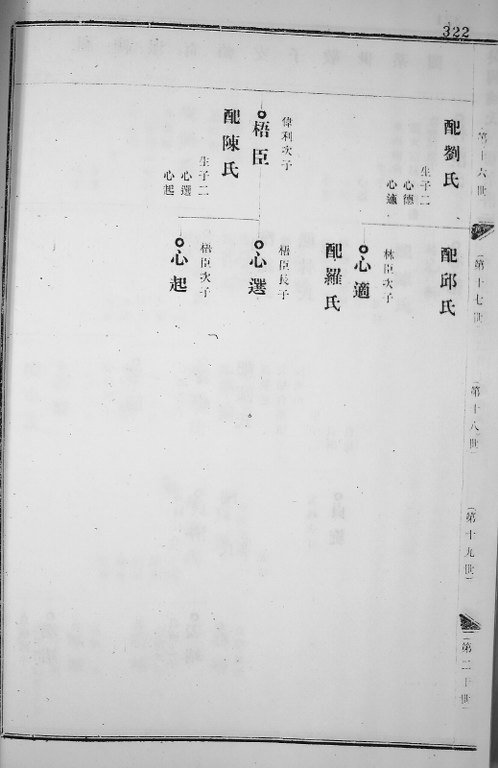 322
第十六世
配劉氏
生子二
心德
心適
偉利次子
梧臣
配陳氏
生子二
心選
心起
第十七世
配邱氏
林臣次子
心適
配羅氏
梧臣長子
心選
梧臣次子
心起
第十八世
第十九世
第二十世